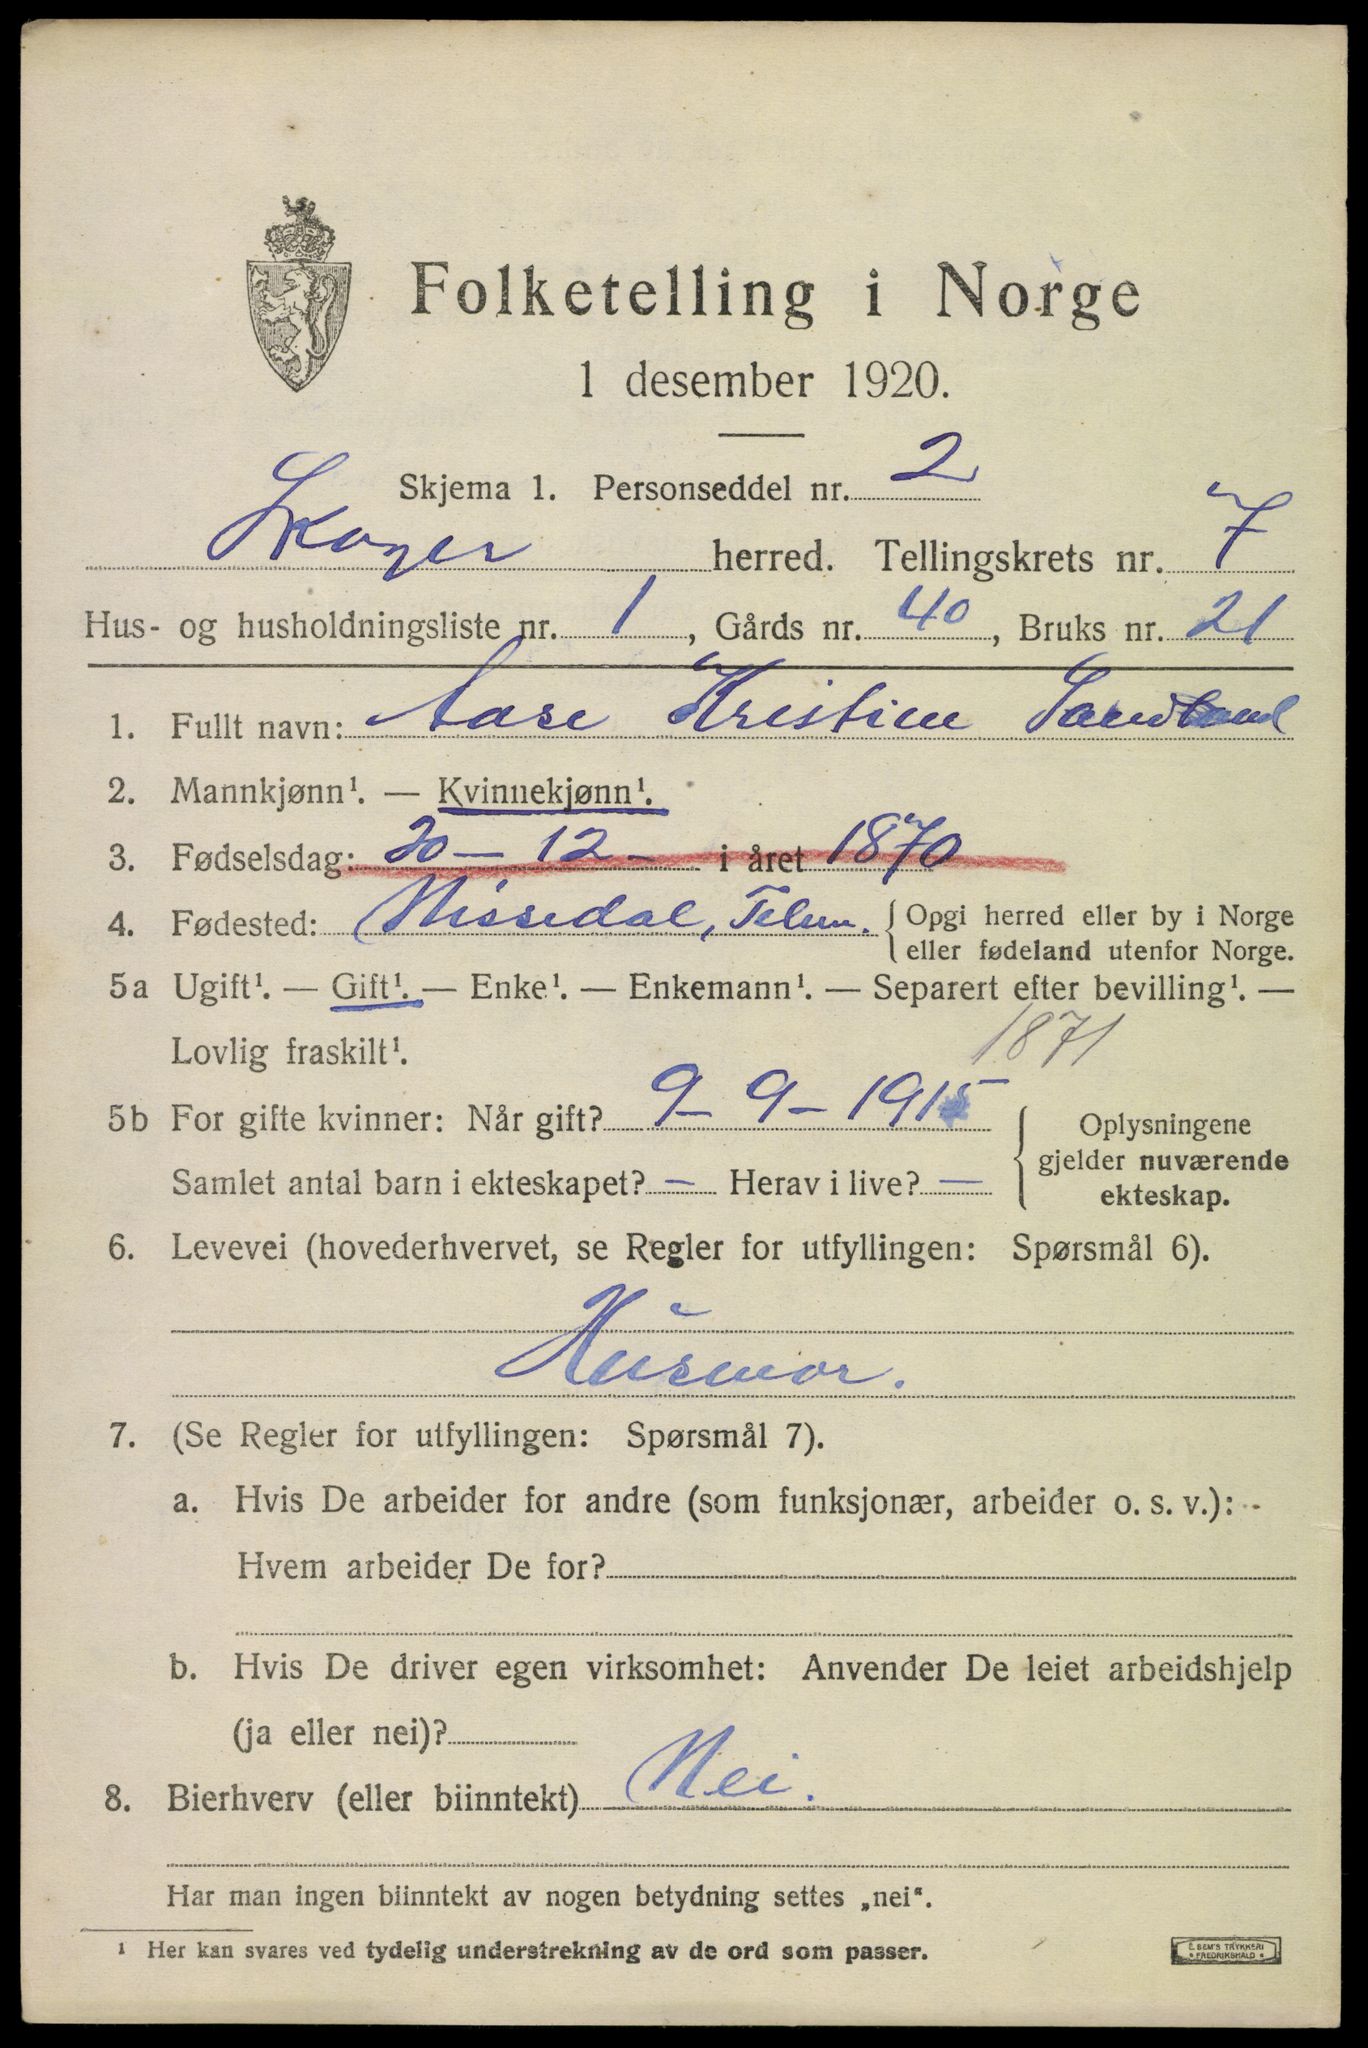 Folketelling i Norge
1 desember 1920.
Skjema 1. Personseddel nr. 2
Skoger herred. Tellingskrets nr. 7
Hus- og husholdningsliste nr. 1, Gårds nr. 40, Bruks nr. 21
1. Fullt navn: Aase Kristine
2. Mannkjønn¹. — Kvinnekjønn¹.
3. Fødselsdag: 20 – 12 – i året 1870
4. Fødested: Nissedal, Telem. { Opgi herred eller by i Norge
eller fødeland utenfor Norge.
5a Ugift¹. — Gift¹. — Enke¹. — Enkemann¹. — Separert efter bevilling¹. —
Lovlig fraskilt¹. 1871
5b For gifte kvinner: Når gift? 9 – 9 – 1915
Samlet antal barn i ekteskapet? — Herav i live? —
Oplysningene
gjelder nuværende
ekteskap.
6. Levevei (hovederhvervet, se Regler for utfyllingen: Spørsmål 6).
Husmor.
7. (Se Regler for utfyllingen: Spørsmål 7).
a. Hvis De arbeider for andre (som funksjonær, arbeider o. s. v.):
Hvem arbeider De for?
b. Hvis De driver egen virksomhet: Anvender De leiet arbeidshjelp
(ja eller nei)?
8. Bierhverv (eller biinntekt) Nei.
Har man ingen biinntekt av nogen betydning settes „nei“.
¹ Her kan svares ved tydelig understrekning av de ord som passer.
E. SEM'S TRYKKERI
• FREDRIKSHALD •